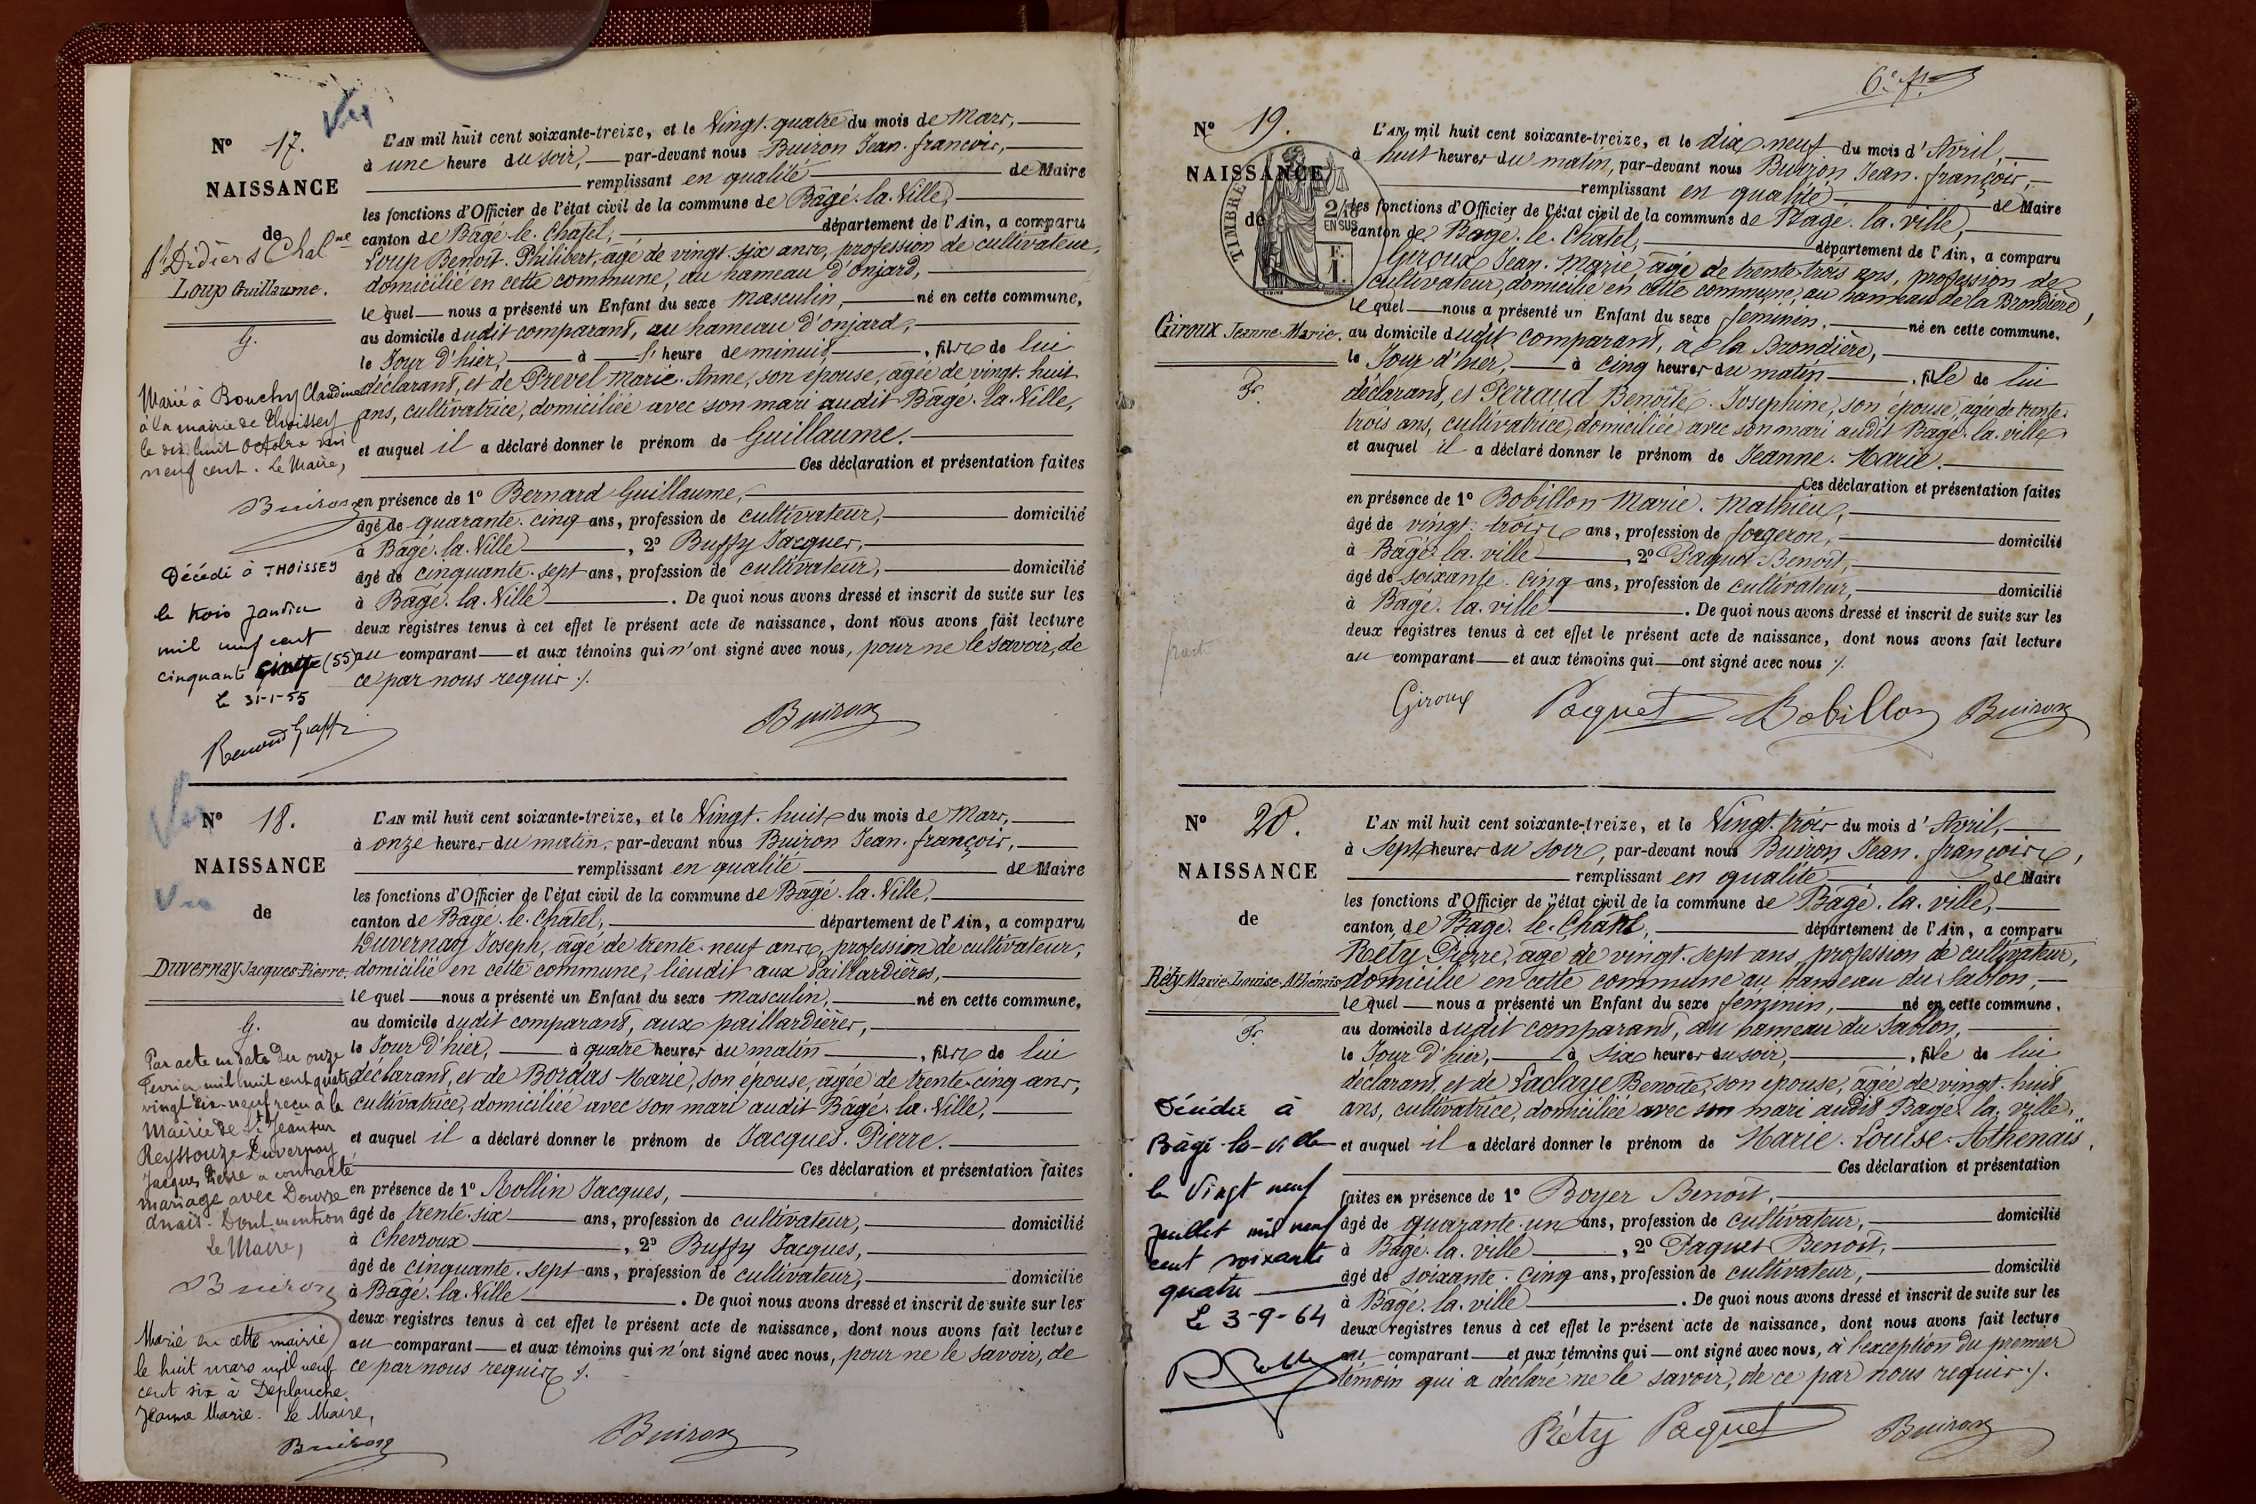 Vu
N° 17.
NAISSANCE
de
St Didier s Chalne
Loup Guillaume.
G.
Marié à Bouchy Claudine
à la mairie de Thoissey
le dix huit octobre mil
neuf cent. Le Maire,
Buiron
Décédé à THOISSEY
le trois Janvier
mil neuf cent
cinquante cinq (55)
Le 31-1-55
L'AN mil huit cent soixante-treize, et le Vingt-quatre du mois de Mars,
à une heure du soir, par-devant nous Buiron Jean-françois,
remplissant en qualité de Maire
les fonctions d'Officier de l'état civil de la commune de Bâgé-la-Ville,
canton de Bâgé-le-Châtel, département de l'Ain, a comparu
Loup Benoît-Philibert, âgé de vingt-six ans, profession de cultivateur,
domicilié en cette commune, au hameau d'onjard,
le quel nous a présenté un Enfant du sexe masculin, né en cette commune,
au domicile dudit comparant, au hameau d'onjard,
le Jour d'hier, à l' heure de minuit, fils de lui
déclarant, et de Prevel Marie-Anne, son épouse, âgée de vingt-huit
ans, cultivatrice, domiciliée avec son mari audit Bâgé-la-Ville,
et auquel il a déclaré donner le prénom de Guillaume.
Ces déclaration et présentation faites
en présence de 1° Bernard Guillaume,
âgé de quarante-cinq ans, profession de cultivateur, domicilié
à Bâgé-la-Ville, 2° Buffy Jacques,
âgé de cinquante-sept ans, profession de cultivateur, domicilié
à Bâgé-la-Ville. De quoi nous avons dressé et inscrit de suite sur les
deux registres tenus à cet effet le présent acte de naissance, dont nous avons fait lecture
au comparant et aux témoins qui n'ont signé avec nous, pour ne le savoir, de
ce par nous requis ./.
Buiron
Vu
N° 18.
NAISSANCE
Vu
de
Duvernay Jacques-Pierre.
G.
Par acte en date du onze
Fevrier mil huit cent quatre
vingt dix-neuf reçu à la
Mairie de St Jean sur
Reyssouze Duvernay
Jacques Pierre a contracté
mariage avec
Dont mention
Le Maire,
Buiron
Marié en cette mairie
le huit mars mil neuf
cent six à Deplanche
Jeanne Marie. Le Maire,
Buiron
L'AN mil huit cent soixante-treize, et le Vingt-huit du mois de Mars,
à onze heures du matin, par-devant nous Buiron Jean-françois,
remplissant en qualité de Maire
les fonctions d'Officier de l'état civil de la commune de Bâgé-la-Ville,
canton de Bâgé-le-Châtel, département de l'Ain, a comparu
Duvernay Joseph, âgé de trente-neuf ans, profession de cultivateur,
domicilié en cette commune, lieudit aux Paillardières,
le quel nous a présenté un Enfant du sexe masculin, né en cette commune,
au domicile dudit comparant, aux paillardières,
le Jour d'hier, à quatre heures du matin, fils de lui
déclarant, et de Bordas Marie, son épouse, âgée de trente-cinq ans,
cultivatrice, domiciliée avec son mari audit Bâgé-la-Ville,
et auquel il a déclaré donner le prénom de Jacques-Pierre.
Ces déclaration et présentation faites
en présence de 1° Rollin Jacques,
âgé de trente-six ans, profession de cultivateur, domicilié
à Chevroux, 2° Buffy Jacques,
âgé de cinquante-sept ans, profession de cultivateur, domicilié
à Bâgé-la-Ville. De quoi nous avons dressé et inscrit de suite sur les
deux registres tenus à cet effet le présent acte de naissance, dont nous avons fait lecture
au comparant et aux témoins qui n'ont signé avec nous, pour ne le savoir, de
ce par nous requis ./.
Buiron
N° 19.
NAISSANCE
de
TIMBRE
2/10
EN SUS
F.
1.
Giroux Jeanne-Marie.
F.
L'AN mil huit cent soixante-treize, et le dix-neuf du mois d'Avril,
à huit heures du matin, par-devant nous Buiron Jean-françois,
remplissant en qualité de Maire
les fonctions d'Officier de l'état civil de la commune de Bâgé-la-ville,
canton de Bâgé-le-Châtel, département de l'Ain, a comparu
Giroux Jean-Marie, âgé de trente-trois ans, profession de
cultivateur, domicilié en cette commune, au hameau de la Brondière,
le quel nous a présenté un Enfant du sexe féminin, né en cette commune,
au domicile dudit comparant, à la Brondière,
le Jour d'hier, à cinq heures du matin, fille de lui
déclarant, et Perraud Benoîte-Josephine, son épouse, âgée de trente-
trois ans, cultivatrice, domiciliée avec son mari audit Bâgé-la-ville,
et auquel il a déclaré donner le prénom de Jeanne-Marie.
Ces déclaration et présentation faites
en présence de 1° Bobillon Marie-Mathieu,
âgé de vingt-trois ans, profession de forgeron, domicilié
à Bâgé-la-ville, 2° Paquet Benoît,
âgé de soixante-cinq ans, profession de cultivateur, domicilié
à Bâgé-la-ville. De quoi nous avons dressé et inscrit de suite sur les
deux registres tenus à cet effet le présent acte de naissance, dont nous avons fait lecture
au comparant et aux témoins qui ont signé avec nous ./.
Giroux Paquet Bobillon Buiron
N° 20.
NAISSANCE
de
Réty Marie-Louise-Athénaïs
F.
Décédée à
Bâgé-la-Ville
le Vingt neuf
Juillet mil neuf
cent soixante
quatre
Le 3-9-64
L'AN mil huit cent soixante-treize, et le Vingt-trois du mois d'Avril,
à Sept heures du soir, par-devant nous Buiron Jean-françois,
remplissant en qualité de Maire
les fonctions d'Officier de l'état civil de la commune de Bâgé-la-ville,
canton de Bâgé-le-Châtel, département de l'Ain, a comparu
Réty Pierre, âgé de vingt-sept ans, profession de cultivateur,
domicilié en cette commune au hameau du Sablon,
le quel nous a présenté un Enfant du sexe féminin, né en cette commune,
au domicile dudit comparant, au hameau du Sablon,
le Jour d'hier, à six heures du soir, fille de lui
déclarant, et de Laclaye Benoîte, son épouse, âgée de vingt-huit
ans, cultivatrice, domiciliée avec son mari audit Bâgé-la-ville,
et auquel il a déclaré donner le prénom de Marie-Louise-Athenaïs,
Ces déclaration et présentation
faites en présence de 1° Boyer Benoît,
âgé de quarante-un ans, profession de cultivateur, domicilié
à Bâgé-la-ville, 2° Paquet Benoît,
âgé de soixante-cinq ans, profession de cultivateur, domicilié
à Bâgé-la-ville. De quoi nous avons dressé et inscrit de suite sur les
deux registres tenus à cet effet le présent acte de naissance, dont nous avons fait lecture
au comparant et aux témoins qui ont signé avec nous, à l'exception du premier
témoin qui a déclaré ne le savoir, de ce par nous requis ./.
Réty Paquet Buiron